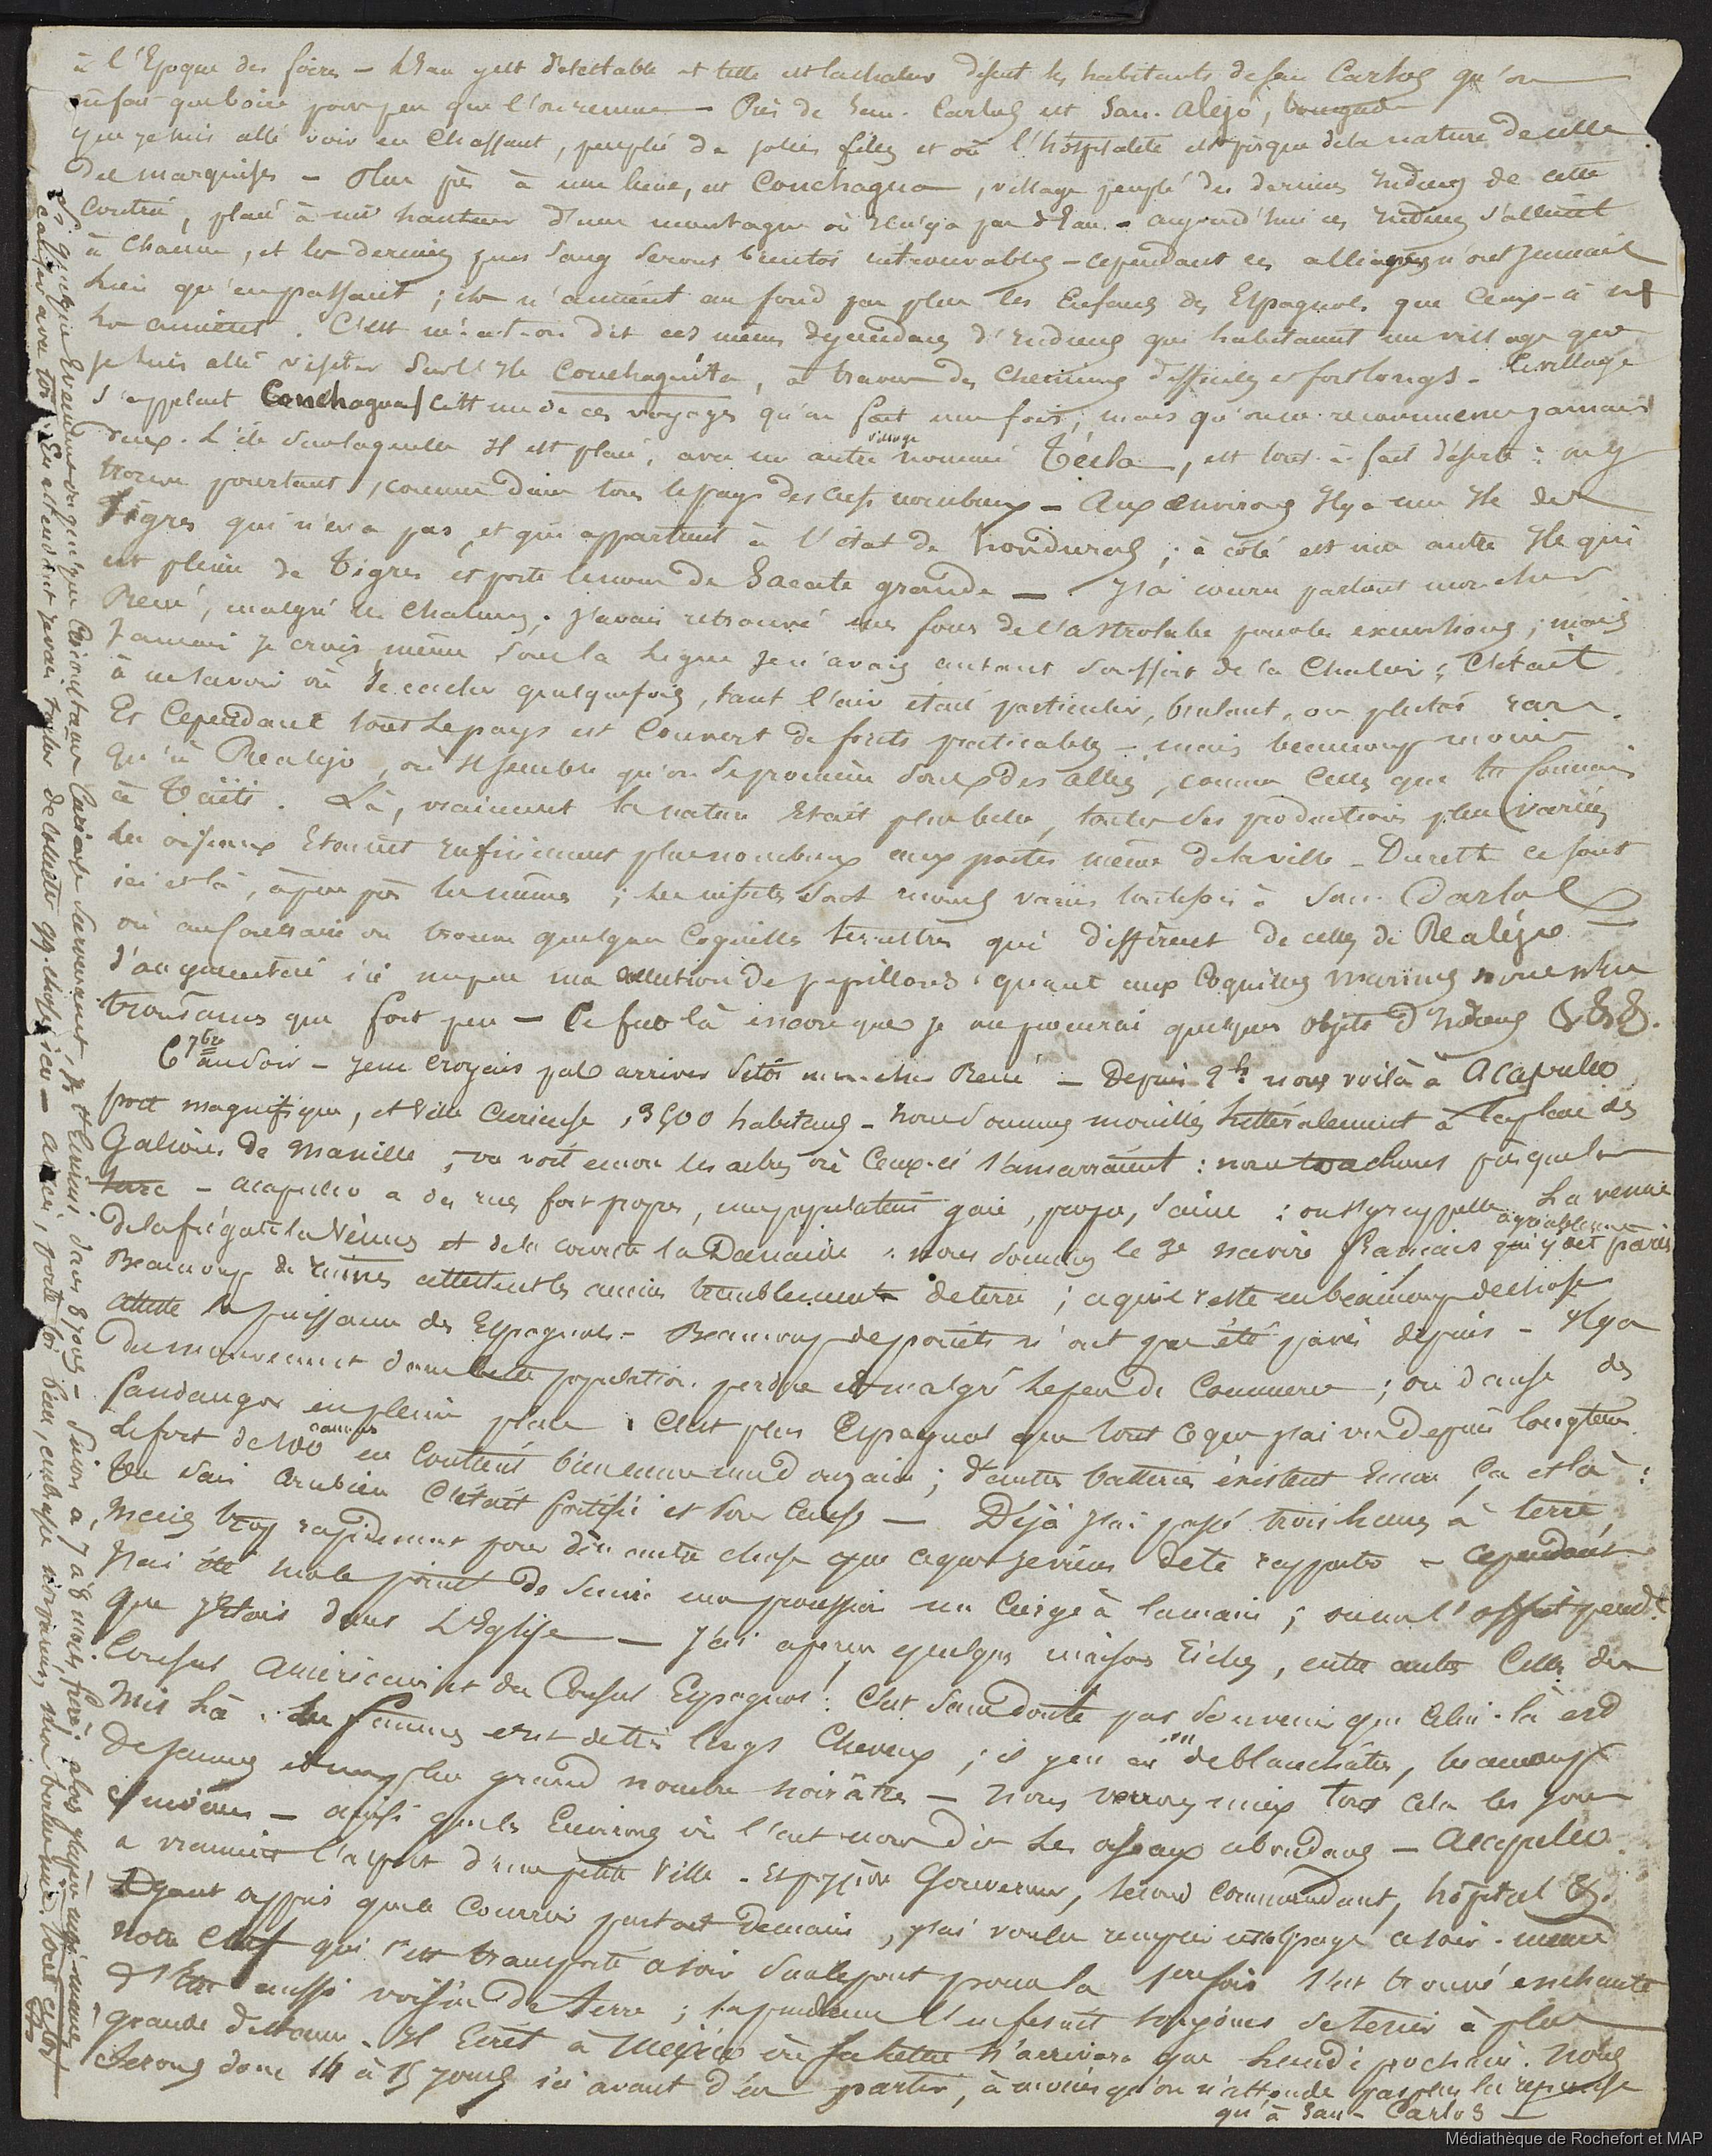 à l'Epoque des foires – L'Eau y est détestable et telle est la chaleur disent les habitants de San Carlos qu'on
ne fait que boire pour peu que l'on remue – Près de San. Carlos est San. Alejo,
que je suis allé voir en Chassant, peuplé de jolies filles et où l'hospitalité est presque de la nature de celle
des marquises – Plus près à une lieue, est Conchagua, village peuplé des derniers Indiens de cette
contrée, placé à mi hauteur d'une montagne où il n'y a pas d'Eau – aujourd'hui ces Indiens s'allient
à Chacun, et les derniers purs sang seront bientôt introuvables – cependant ces alliances n'ont jamais
lieu qu'en passant ; ils n'aiment au fond pas plus les Enfans des Espagnols que Ceux-ci ne
les aiment. C'est m'a-t-on dit ces mêmes descendans d'Indiens qui habitaient un village que
je suis allé visiter sur l'Ile Conchaguita, à travers des Chemins difficiles et fort longs – le village
s'appelait Conchagua / C'est un de ces voyages qu'on fait une fois, mais qu'on ne recommence jamais
deux. L'île sur laquelle Il est placé, avec un autre village nommé Técla, est tout-à-fait déserte : on y
trouve pourtant, comme dans tous le pays des cerfs nombreux – Aux environs Il y a une Ile des
Tigres qui n'en a pas, et qui appartient à l'état de honduras ; à côté est une autre Ile qui
est pleine de Tigres et porte le nom de Sacate grande – J'ai couru partout mon cher
René, malgré les Chaleurs, j'avais retrouvé mes fours de l'astrolabe pour les excursions ; mais
jamais je crois même sous la Ligne je n'avais autant souffert de la Chaleur ; C'était
à ne savoir où se cacher quelquefois, tant l'air était particulier, brulant, ou plutôt rare.
Et Cependant tout le pays est Couvert de forêts praticables – mais beaucoup moins
qu'à Realejo, où Il semble qu'on se promène sous des allées, comme Celles que tu Connais
à Taïti. Là, vraiment la nature était plus belle, toutes ses productions plus variées
les oiseaux Etaient infiniment plus nombreux aux portes même de la ville – Du reste ce sont
ici et là, à peu près les mêmes ; les insectes sont moins variés toutefois à San. Carlos
où au Contraire on trouve quelques Coquilles terrestres qui diffèrent de celles de Realéjo –
J'ai augmenté ici un peu ma collection de papillons ; quant aux Coquilles marines nous n'en
trouvâmes que fort peu – Ce fut là encore que je me procurai quelques objets d'Indiens &&&.
6 7bre au soir – Je ne croyais pas arriver sitôt mon cher René – Depuis 2h. nous voilà à Acapulco
port magnifique, et ville curieuse, 3500 habitans – Nous sommes mouillés littéralement à la place des
Galions de Manille, on voit encore les arbres où Ceux-ci s'amarraient : nous touchons presque la
terre – Acapulco a des rues fort propres, une population gaie, propre, saine : on s'y rappelle la venue
de la frégate la Vénus et de la corvette la Danaïde ; nous sommes le 3e navire français qui y ait paru agréablement
Beaucoup de ruines attestent les anciens tremblements de terre ; ce qui reste en beaucoup de choses
atteste la puissance des Espagnols – Beaucoup de portions n'ont pas été pavés depuis – Il y a
du mouvement dans cette population perdue et malgré le peu de Commerce ; on danse des
fandangos en pleine place. C'est plus Espagnol que tout ce que j'ai vu depuis longtems
Le fort de 100 canons en contient bien encore une douzaine ; d'autres batteries existent Encore çà et là :
Tu sais combien C'était fortifié et pour cause – Déjà j'ai passé trois heures à terre,
mais trop rapidement pour dire autre chose que ce que je viens de te rapporter – Cependant
j'ai été sur le point de suivre une procession un Cierge à la main ; on me l'offrit pendt.
que j'étais dans l'Eglise – J'ai aperçu quelques maisons riches, entre autres Celle du
Consul Américain et du Consul Espagnol ! C'est sans doute par souvenir que Celui-là est
mis là. Les femmes ont de très longs Cheveux ; il y en a de blanchâtres, beaucoup
de jaunes et un plus grand nombre noirâtres – Nous verrons mieux tout cela les jours
suivans – ainsi que les Environs où l'on nous dit les oiseaux abondans – Acapulco
a vraiment l'aspect d'une petite Ville – Il y a Gouverneur, second Commandant, hôpital &.
Ayant appris que le Courrier partait Demain, j'ai voulu remplir cette page ce soir même
Notre Chef qui s'est transporté ce soir sur le pont pour la 1ere fois s'est trouvé enchanté
d'Etre aussi voisin de terre ; sa prudence l'en faisait toujours se tenir à plus
grande distance. Il Ecrit à Mexico où sa lettre n'arrivera que lundi prochain. Nous
serons donc 14 à 15 jours ici avant d'en partir, à moins qu'on n'attende pas plus la réponse
qu'à San – Carlos –
Si quelque Evènement ou quelque Circonstance Curieuse survenaient, Je t'Ecrirai dans 8 jours – Sinon à 7 à 8 mois
En attendant je vais tacher de collecter qq. choses ici – Adieu, porte toi bien, embrasse